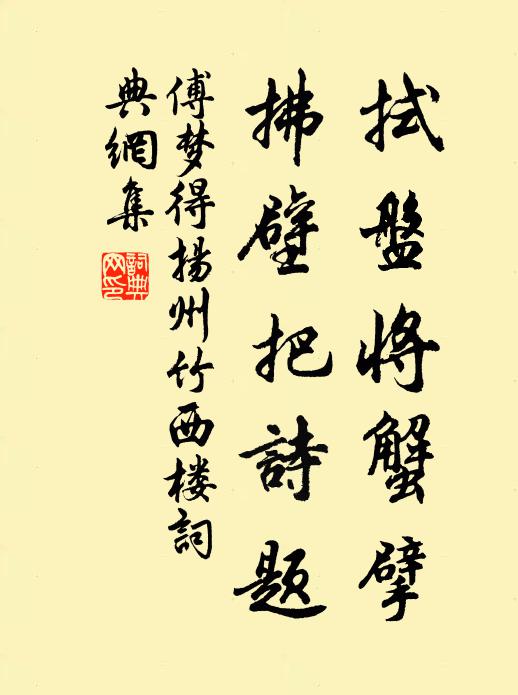 拭盤將蟹擘
拂壁把詩題
傅梦得揚州竹西楼詞
典網集
詞典
网印